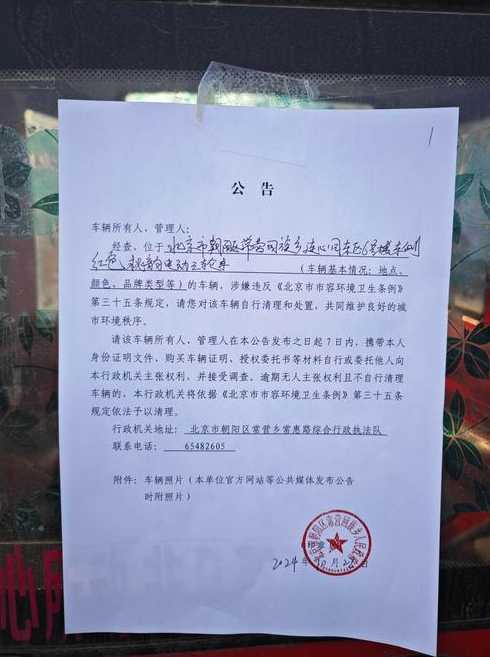 1
公 告
车辆所有人、管理人：
经查，位于北京市朝阳区常营回族乡连心园东区6号楼东侧
红色 电动三轮车（车辆基本情况：地点、
颜色、品牌类型等）的车辆，涉嫌违反《北京市市容环境卫生条例》
第三十五条规定，请您对该车辆自行清理和处置，共同维护良好的城
市环境秩序。
请该车辆所有人、管理人在本公告发布之日起7日内，携带本人
身份证明文件、购买车辆证明、授权委托书等材料自行或委托他人向
本行政机关主张权利，并接受调查。逾期无人主张权利且不自行清理
车辆的，本行政机关将依据《北京市市容环境卫生条例》第三十五条
规定依法予以清理。
行政机关地址：北京市朝阳区常营乡常惠路综合行政执法队
联系电话：65482605
附件：车辆照片（本单位官方网站等公共媒体发布公告
时附照片）
北京市朝阳区常营回族乡人民政府
2024年 月 日